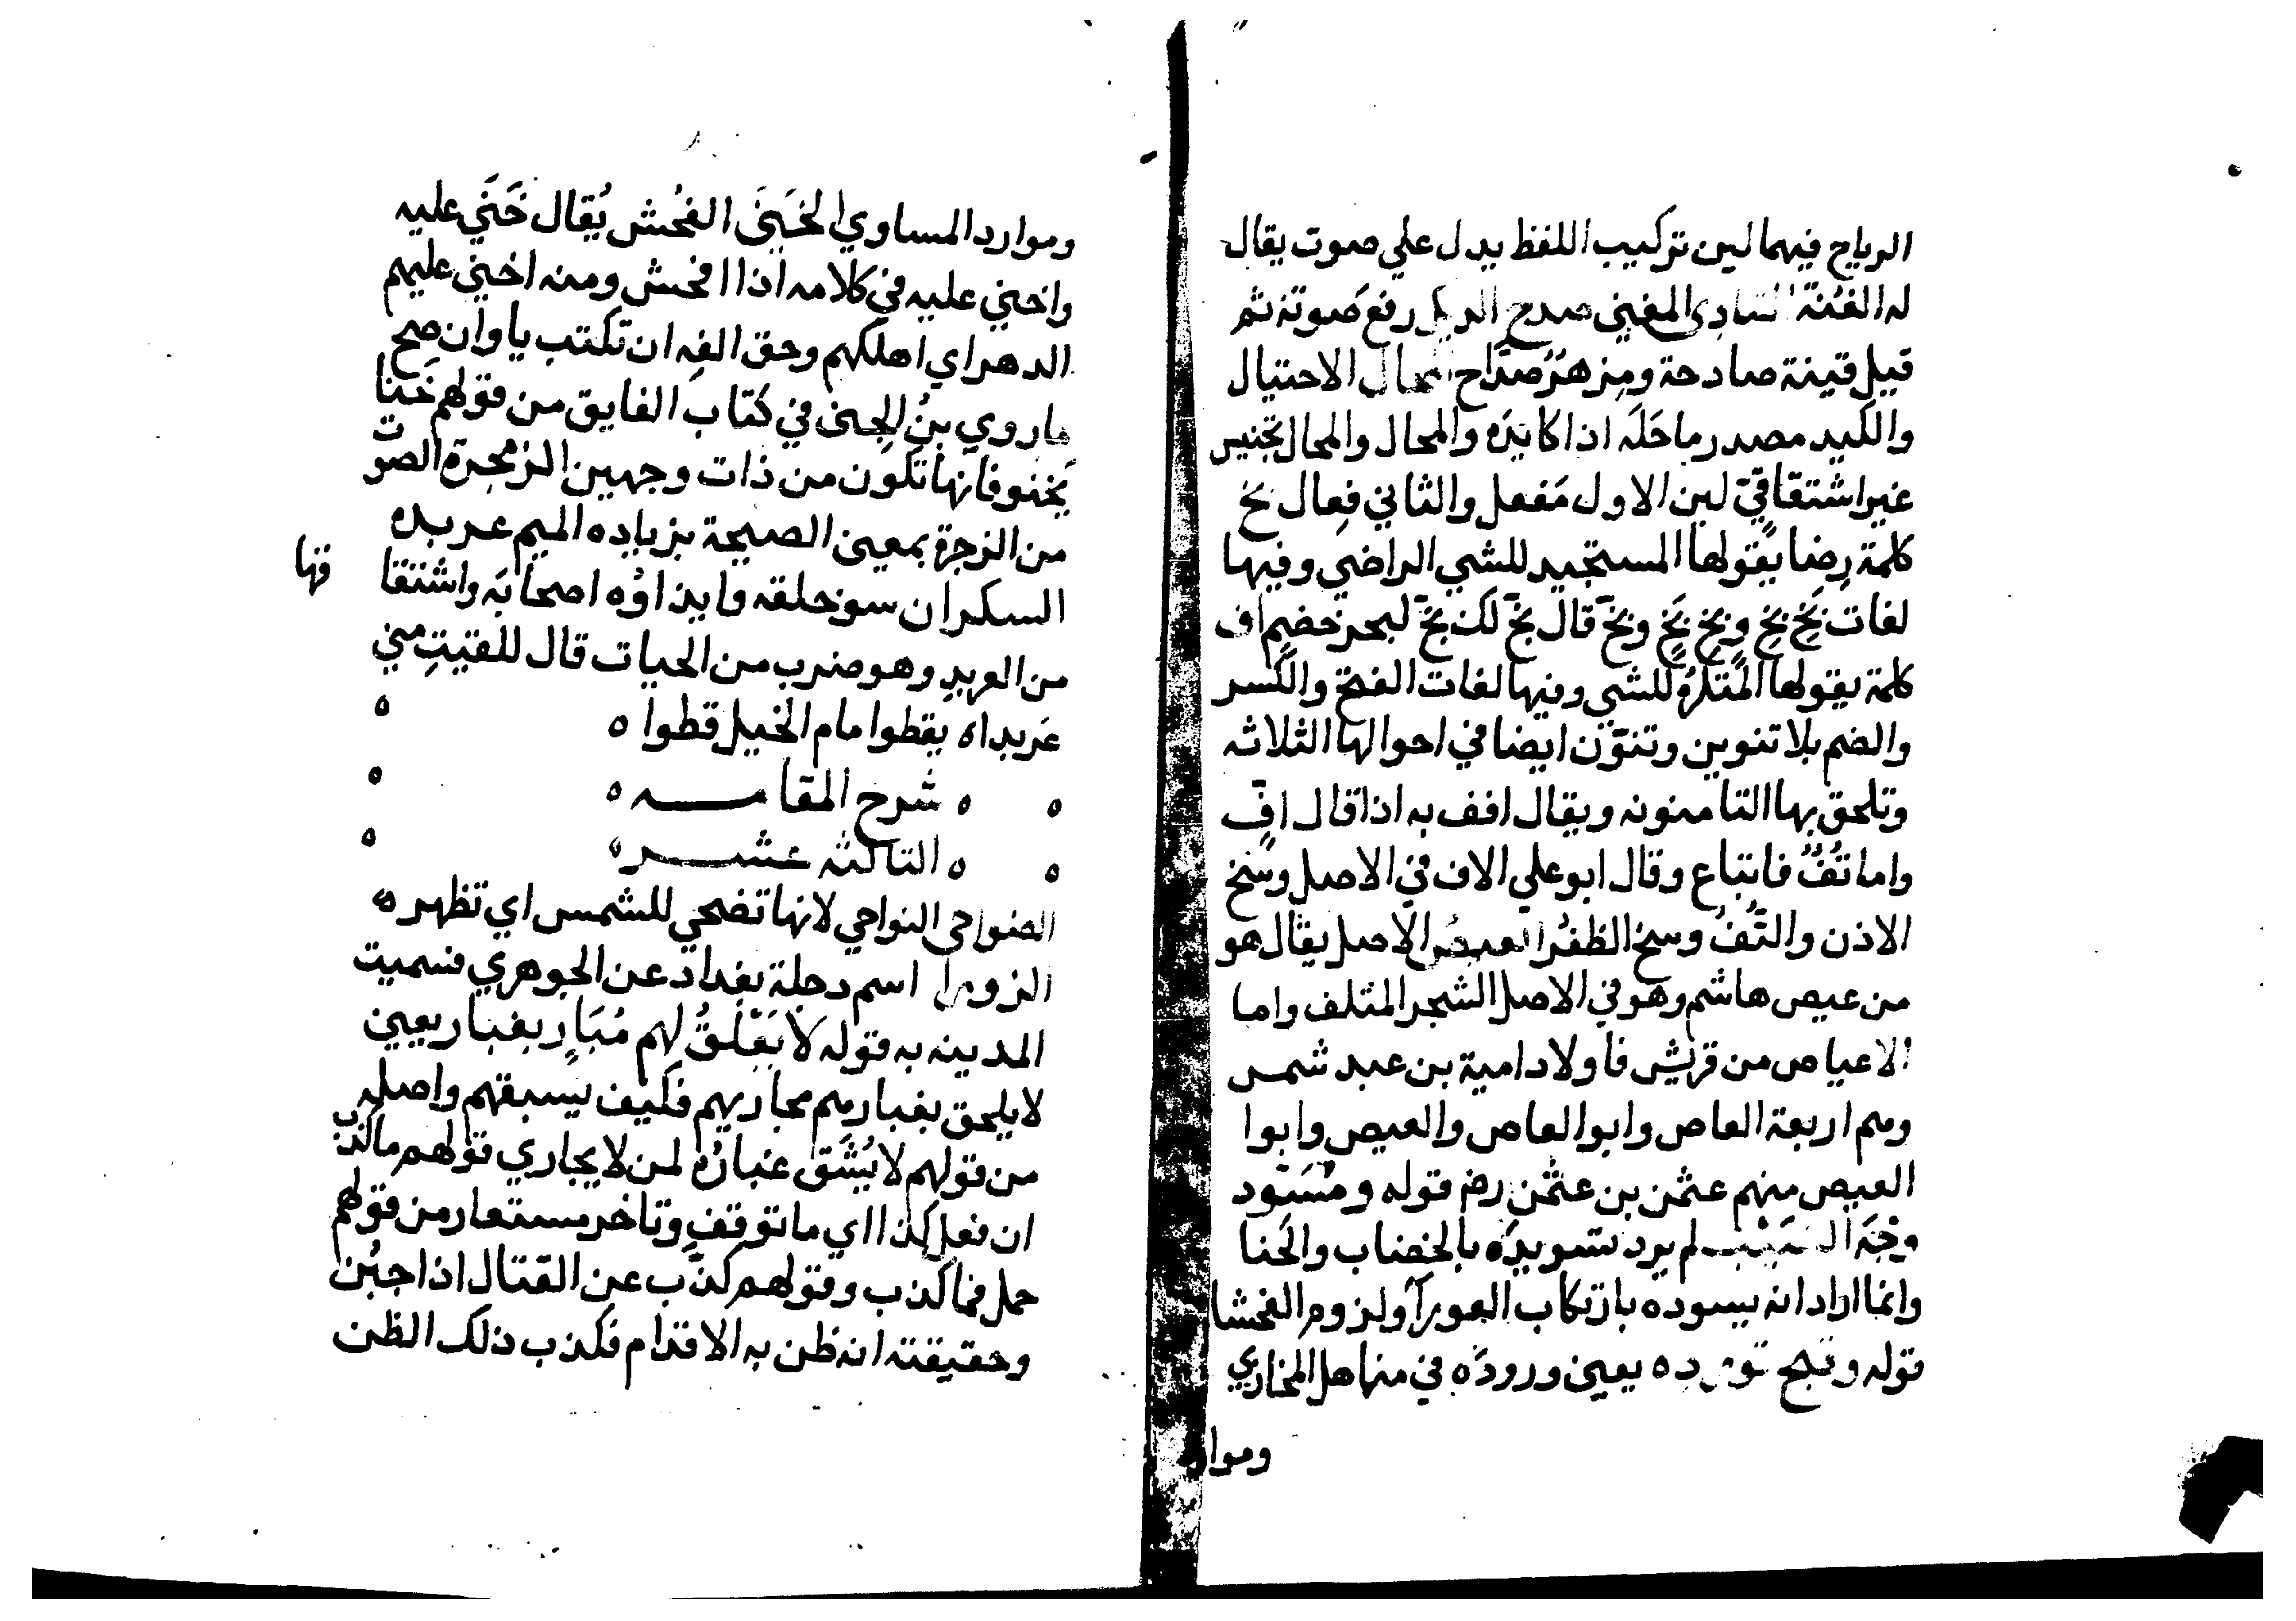 الرياح فيهما لين تركيب اللفظ يدل علي صوت يقال
له الغنة الشادي المغني صدح الديك رفع صوته ثم
قيل قينة صادحة ومزهر صداح المحال الاحتيال
والكيد مصدر ماحله اذا كايده والمحال والمحال تجنيس
غير اشتقاقي لين الاول مفعل والثاني فعال بخ
كلمة رضا يقولها المستجيد للشي الراضي وفيها
لغات بخ بخ وبخ بخ وبخ قال بخ لك بخ لبحر خضم اف
كلمة يقولها المتكره للشي وفيها لغات الفتح والكسر
والضم بلا تنوين وتنون ايضا في احوالها الثلاثه
وتلحق بها التا منونه ويقال افف به اذا قال اف
واما تف فاتباع وقال ابو علي الاف في الاصل وسخ
الاذن والتف وسخ الظفر العيص الاصل يقال هو
من عيص هاشم وهو في الاصل الشجر المتلف واما
الاعياص من قريش فاولاد امية بن عبد شمس
وهم اربعة العاص وابوا العاص والعيص وابوا
العيص منهم عثمن بن عثمن رض قوله ومسود
وجه الشيب لم يرد تسويده بالخضاب والحنا
وانما اراد انه يسوده بارتكاب العورآ ولزوم الفحشا
قوله وقبح تورده يعين وروده في مناهل المخازي
وموار
وموارد المساوي الخنى الفحش يقال خنى عليه
واخنى عليه في كلامه اذا افحش ومنه اخنى عليهم
الدهر اي اهلكهم وحق الفه ان تكتب يا وان صح
ماروي بن الجني في كتاب الفايق من قولهم خنا
يخنو فانها تكون من ذات وجهين الزمجرة الصوت
من الزجرة بمعين الصيحة بزياده الميم عربده
السكران سو خلقه وايذاؤه اصحابه واشتقاقها
من العربد وهو ضرب من الحيات قال للقيت مني
عربدا ه يقطوا مام الخيل قطوا ه
ه ه شرح المقامه ه ه
ه ه الثالثه عشره ه
الضواحي النواحي لانها تضحي للشمس اي تظهر ه
الزورا اسم دجلة بغداد عن الجوهري فسميت
المدينه به قوله لا يعلق لهم مبار بغبار يعين
لا يلحق بغبارهم مجاريهم فكيف يسبقهم واصله
من قولهم لا يشق غباره لمن لا يجاري قولهم ماكذب
ان فعل كذا اي ما توقف وتاخر مستعار من قولهم
حمل فما كذب وقولهم كذب عن القتال اذا جبن
وحقيقته انه ظن به الاقدام فكذب ذلك الظن